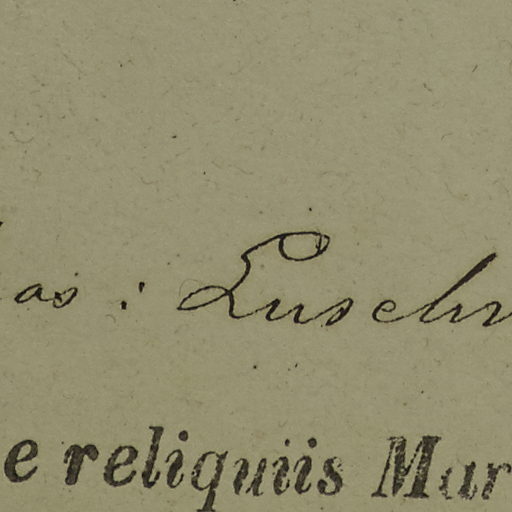 as : Luschn
e reliquiis Mar